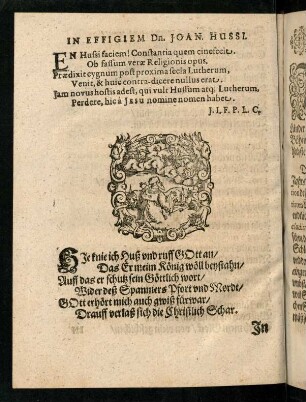 IN EFFIGIEM Dn. JOAN. HUSSI.
EN Hussi faciem! Constantia quem cinefecit.
Ob fassum veræ Religionis opus.
Prædixit cygnum post proxima secla Lutherum,
Venit, & huic contra-dicere nullus erat.
Jam novus hostis adest, qui vult Hussum atq; Lutherum,
Perdere, hic à JESU nomine nomen habet.
J. I. F. P. L. C.
HJe knie ich Huß vnd ruff GOtt an/
Das Er meim König wöll beystahn/
Auff das er schutz sein Göttlich wort/
Wider deß Spanniers Pfort vnd Mordt/
GOtt erhört mich auch gwiß fürwar/
Drauff verlaß sich die Christlich Schar.
In